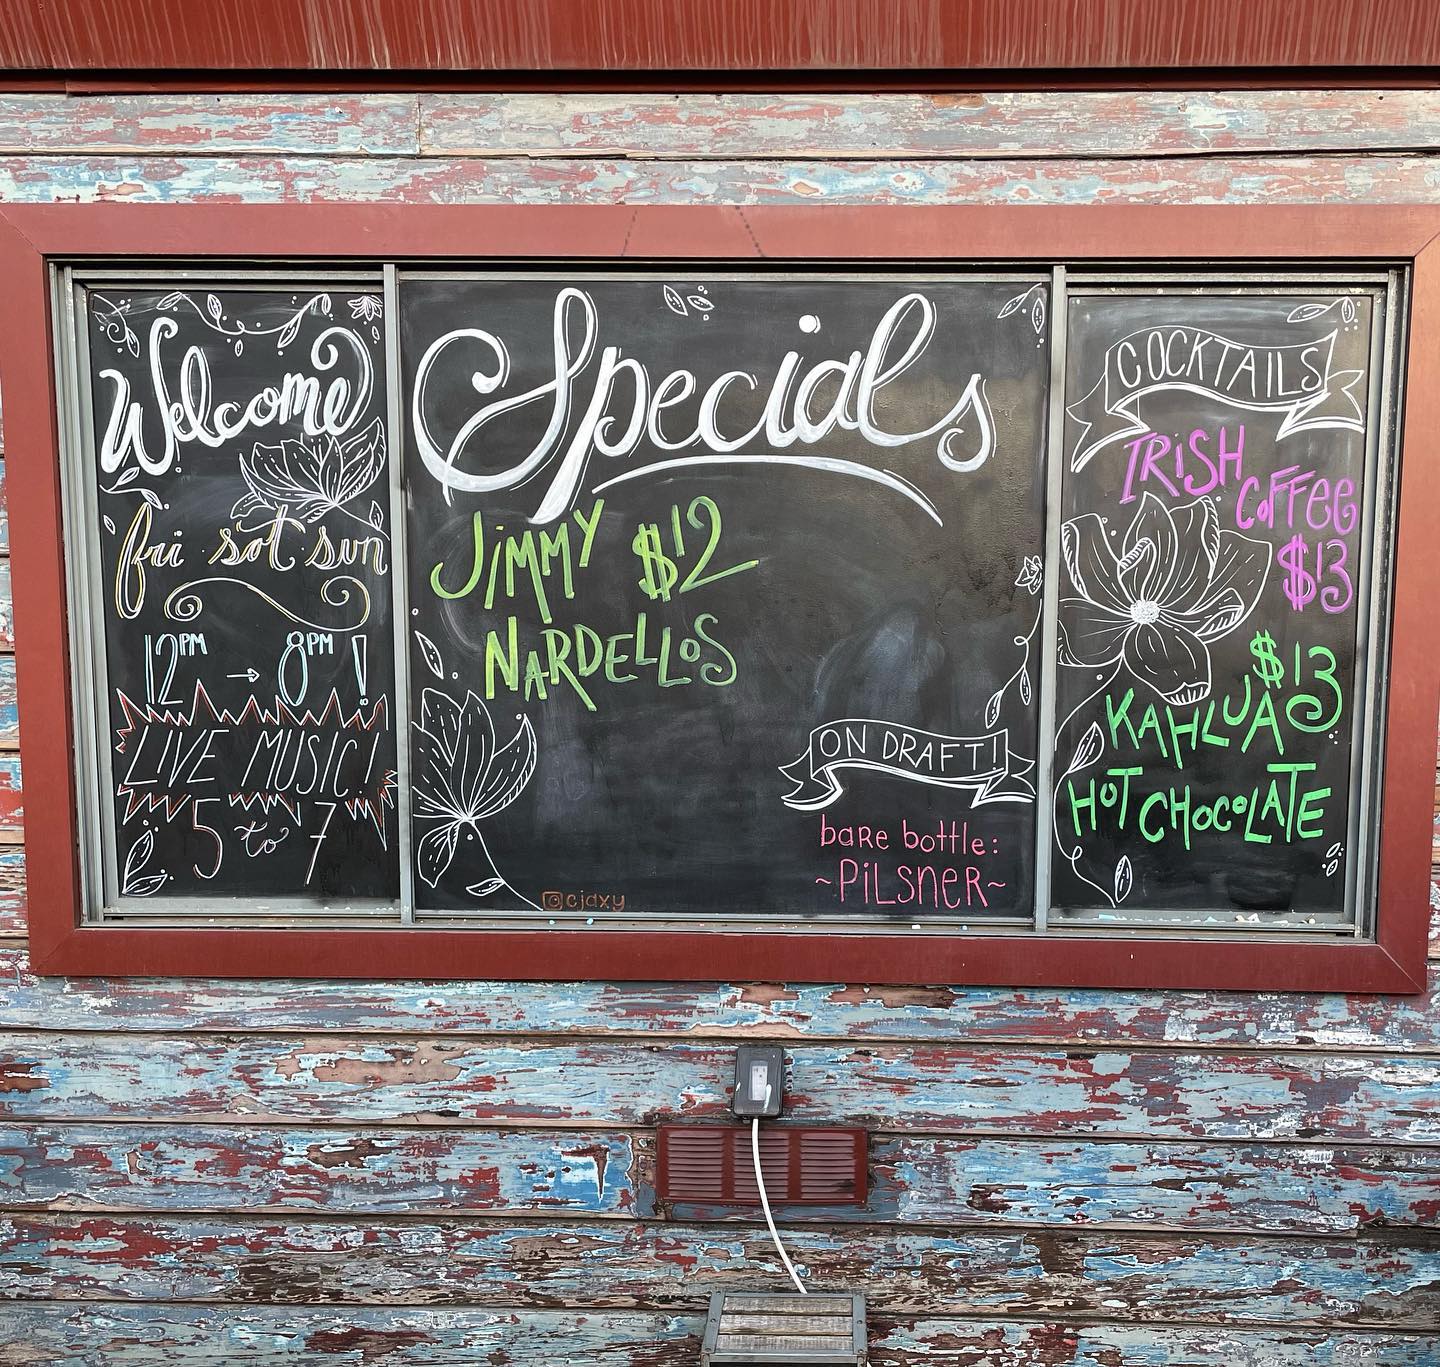 Welcome
fri sat sun
12PM → 8PM!
LIVE MUSIC!
5 to 7
Specials
JiMMY $12
NARDELLOS
@cjaxy
ON DRAFT!
baRe bottle:
~PiLSneR~
COCKTAILS
IRiSH
CoFFee
$13
$13
KAHLUA
HOT CHOCoLATE